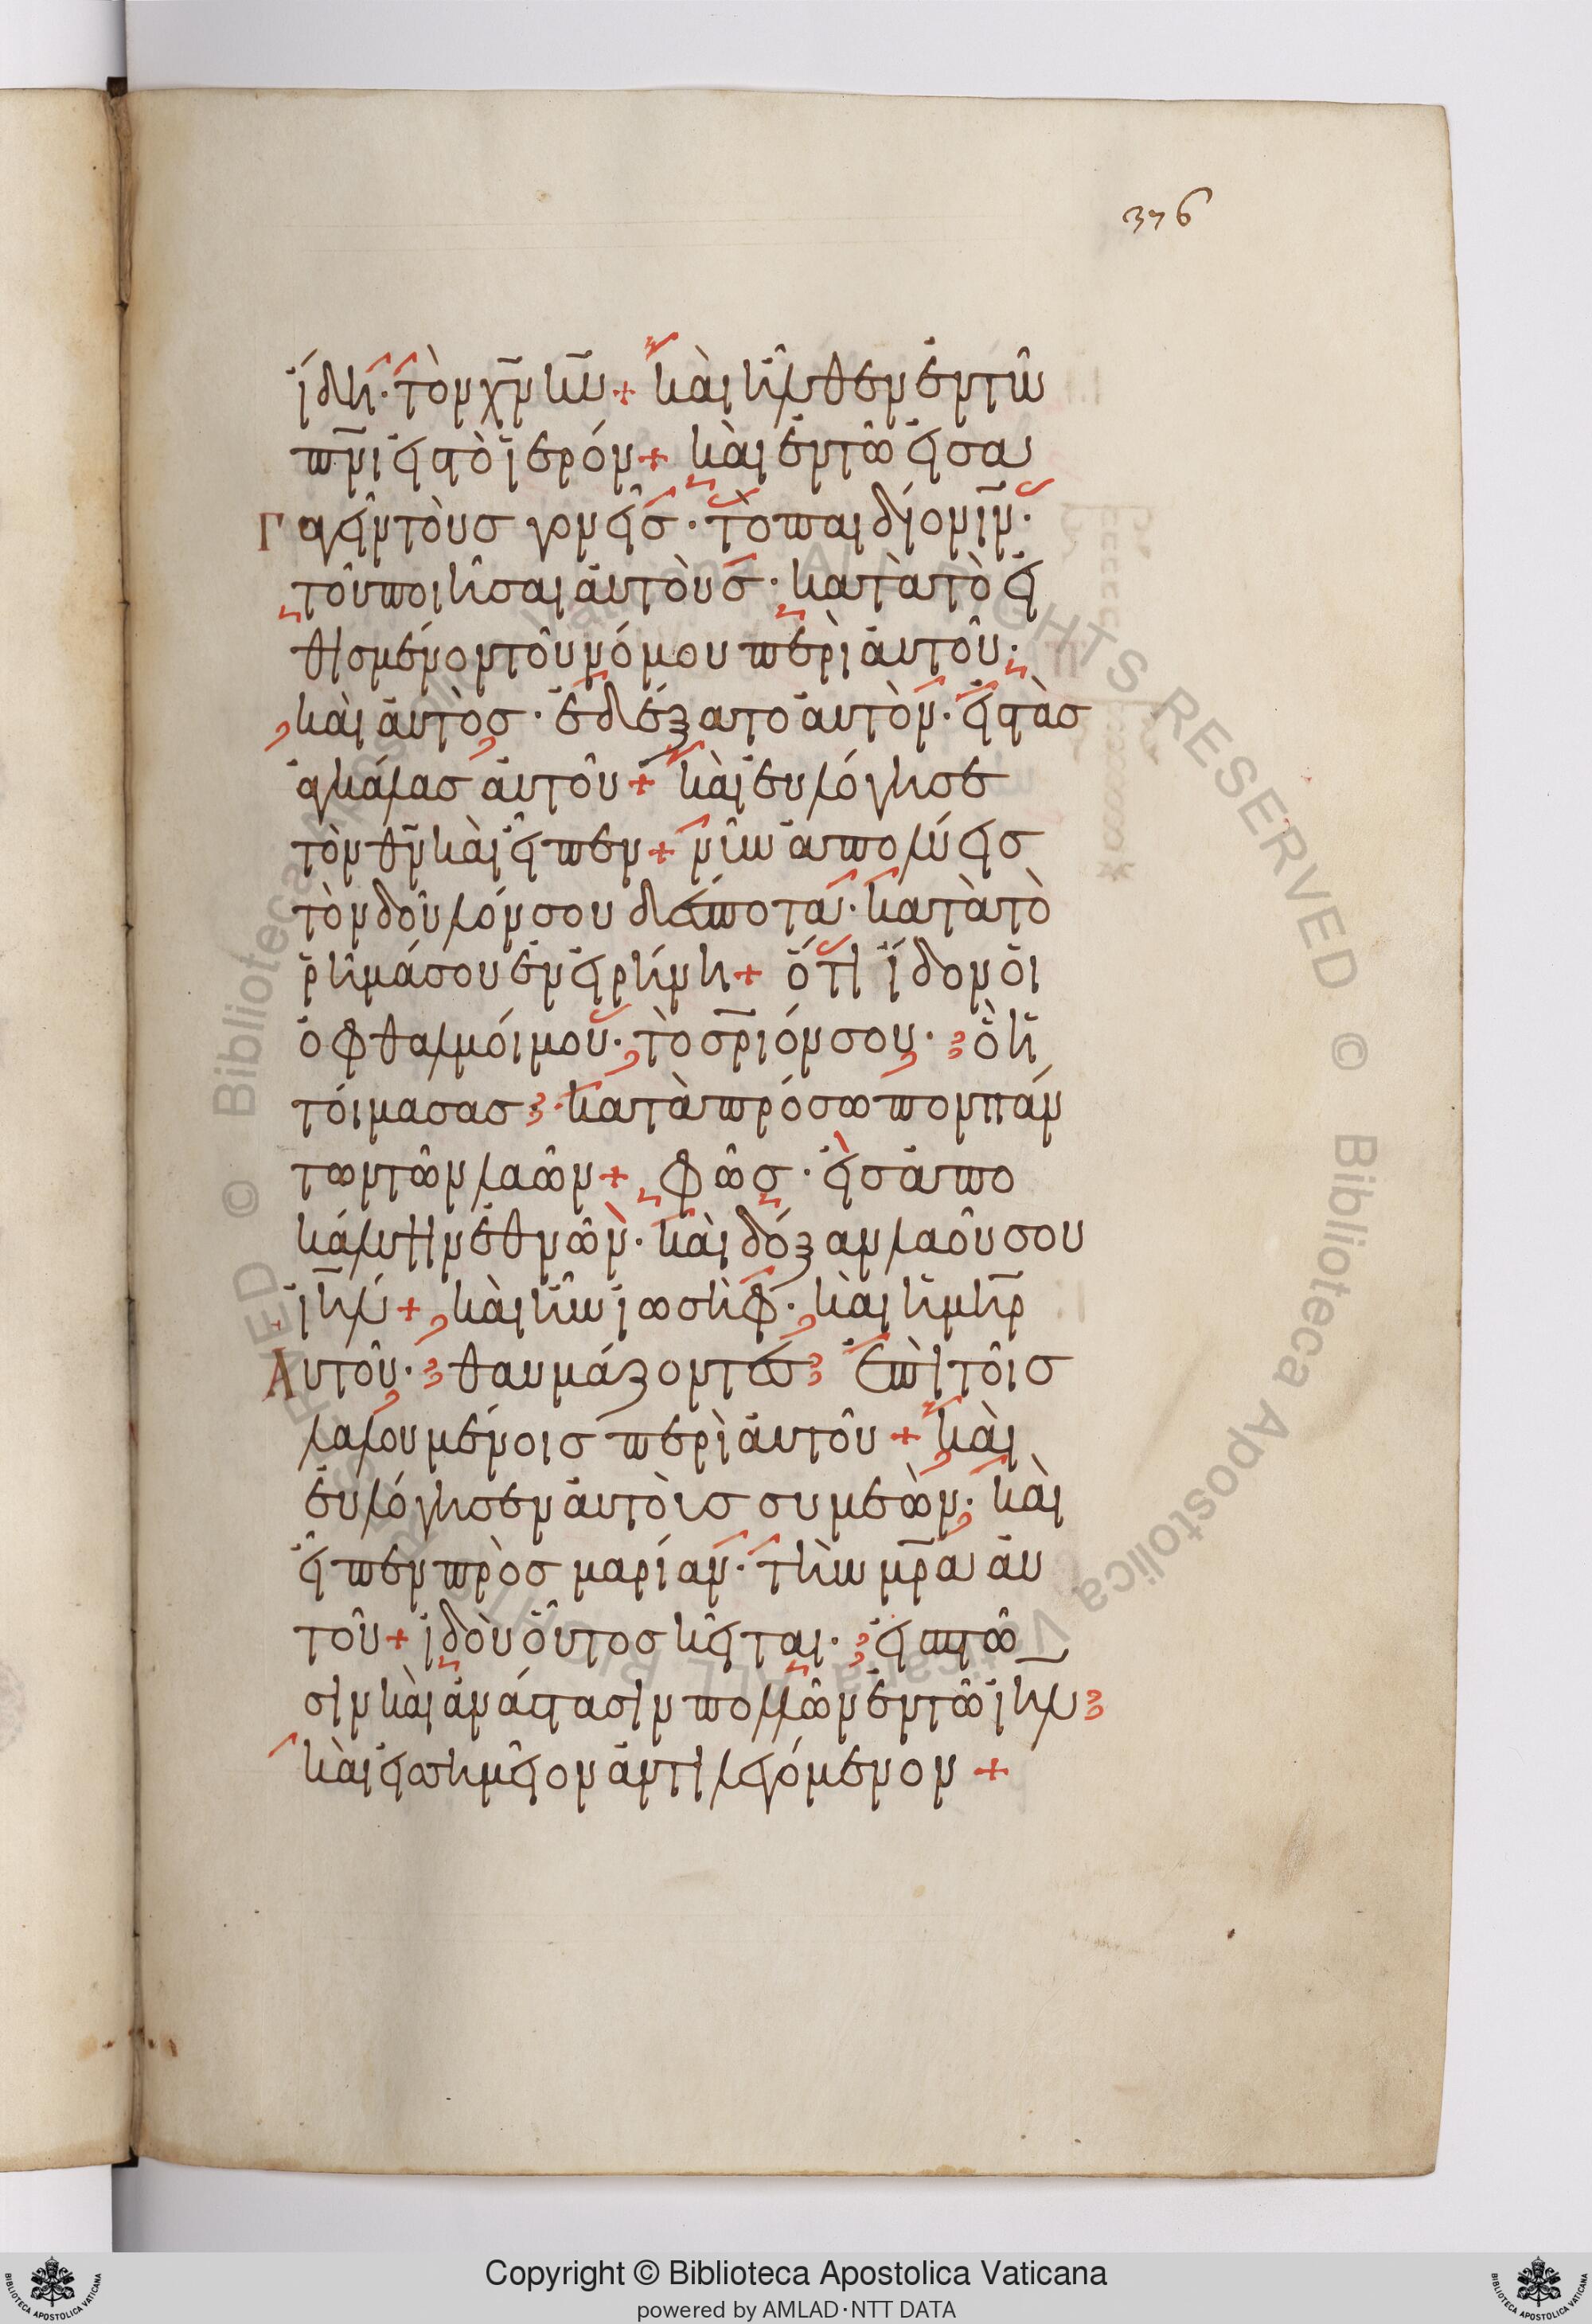 376
ἴδη· τὸν χ̅ν κ̅υ + καὶ ἦλθεν ἐν τῶ
π̅νι εἰς τὸ ἱερόν + καὶ ἐν τῶ εἰσα
γαγεῖν τοὺσ γονεῖσ· τὸ παιδίον ι̅ν·
τοῦ ποιῆσαι ἀυτοὺσ· κατὰ τὸ εἰ
θισμένον τοῦ νόμου περὶ ἀυτοῦ·
καὶ ἀυτὸσ· ἐδέξατο ἀυτὸν· εἰς τὰσ
ἀγκάλασ ἀυτοῦ + καὶ ἐυλόγησε
τὸν θ̅ν καὶ εἶπεν + νῦν ἀπολύεισ
τὸν δοῦλόν σου δέσποτα· κατὰ τὸ
ῥῆμά σου ἐν εἰρήνη + ὅτι ἴδον οἱ
ὀφθαλμόι μου· τὸ σ̅ριόν σου· ὃ ἡ
τόιμασασ· κατὰ πρόσωπον πάν
των τῶν λαῶν + φῶσ· εἰσ ἀπο
κάλυψιν ἐθνῶν· καὶ δόξαν λαοῦ σου
ι̅ηλ + καὶ ἦν ἰωσὴφ· καὶ ἡ μ̅ηρ
Αυτοῦ· θαυμάζοντεσ ἐπὶ τοῖσ
λαλουμένοισ περὶ ἀυτοῦ + καὶ
ἐυλόγησεν ἀυτοὺσ συμεὼν· καὶ
εἶπεν πρὸσ μαρίαν· τὴν μ̅ρα ἀυ
τοῦ + ἰδοὺ οὗτοσ κεῖται· εἰς πτῶ
σιν καὶ ἀνάστασιν πολλῶν ἐν τῶ ι̅ηλ
καὶ εἰς σημεῖον ἀντιλεγόμενον +
Copyright © Biblioteca Apostolica Vaticana
powered by AMLAD·NTT DATA